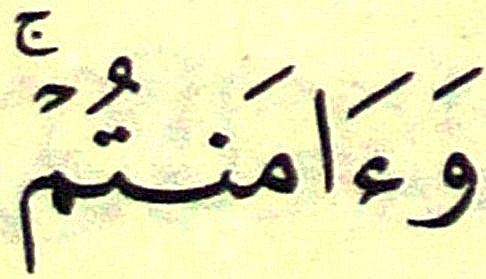 وَءَامَنتُمْۚ